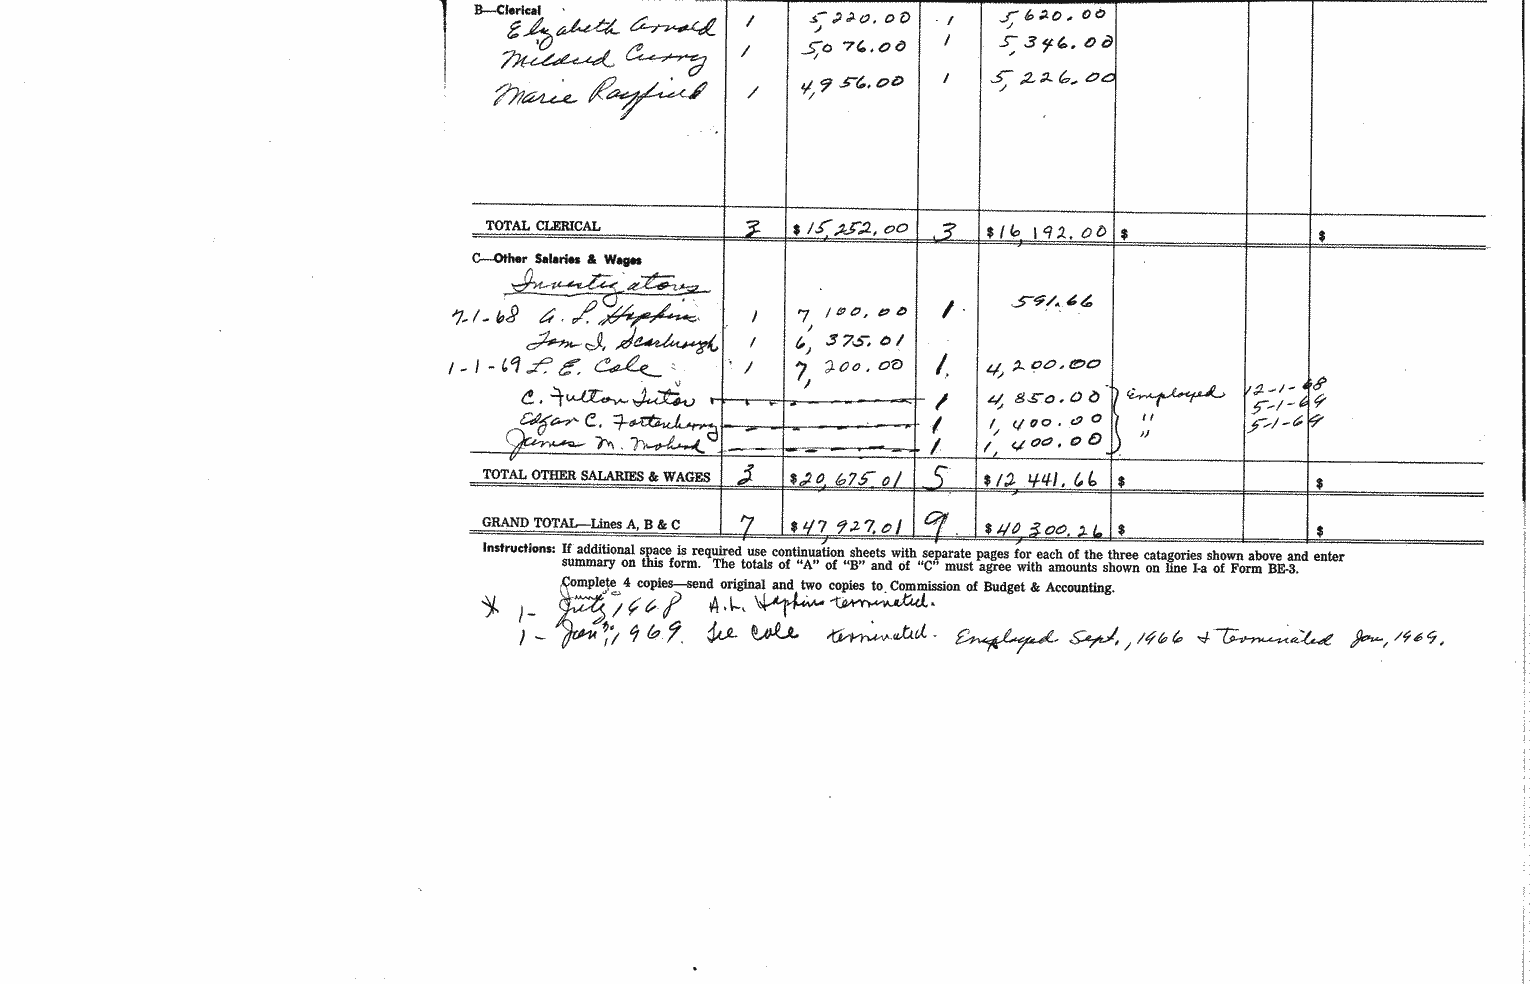 B—Clerical
Elizabeth Arnold 1 5,220.00 1 5,620.00
Mildred Curry 1 5,076.00 1 5,346.00
Marie Rayfield 1 4,956.00 1 5,226.00
TOTAL CLERICAL 3 $15,252.00 3 $16,192.00 $ $
C—Other Salaries & Wages
Investigators
7-1-68 A. L. Hopkins 1 7,100.00 1. 591.66
Tom I. Scarbrough 1 6,375.01
1-1-69 L. E. Cole 1 7,200.00 1. 4,200.00
C. Fulton Tutor 1 4,850.00 Employed 12-1-68
Edgar C. Fortenberry 1 1,400.00 " 5-1-69
James M. Mohead 1 1,400.00 " 5-1-69
TOTAL OTHER SALARIES & WAGES 3 $20,675.01 5 $12,441.66 $ $
GRAND TOTAL—Lines A, B & C 7 $47,927.01 9. $40,300.26 $ $
Instructions: If additional space is required use continuation sheets with separate pages for each of the three catagories shown above and enter
summary on this form. The totals of "A" of "B" and of "C" must agree with amounts shown on line I-a of Form BE-3.
Complete 4 copies—send original and two copies to Commission of Budget & Accounting.
* 1- July 1968 A.L. Hopkins terminated.
1- Jan, 1969. Lee Cole terminated. Employed Sept., 1966 & Terminated Jan, 1969.